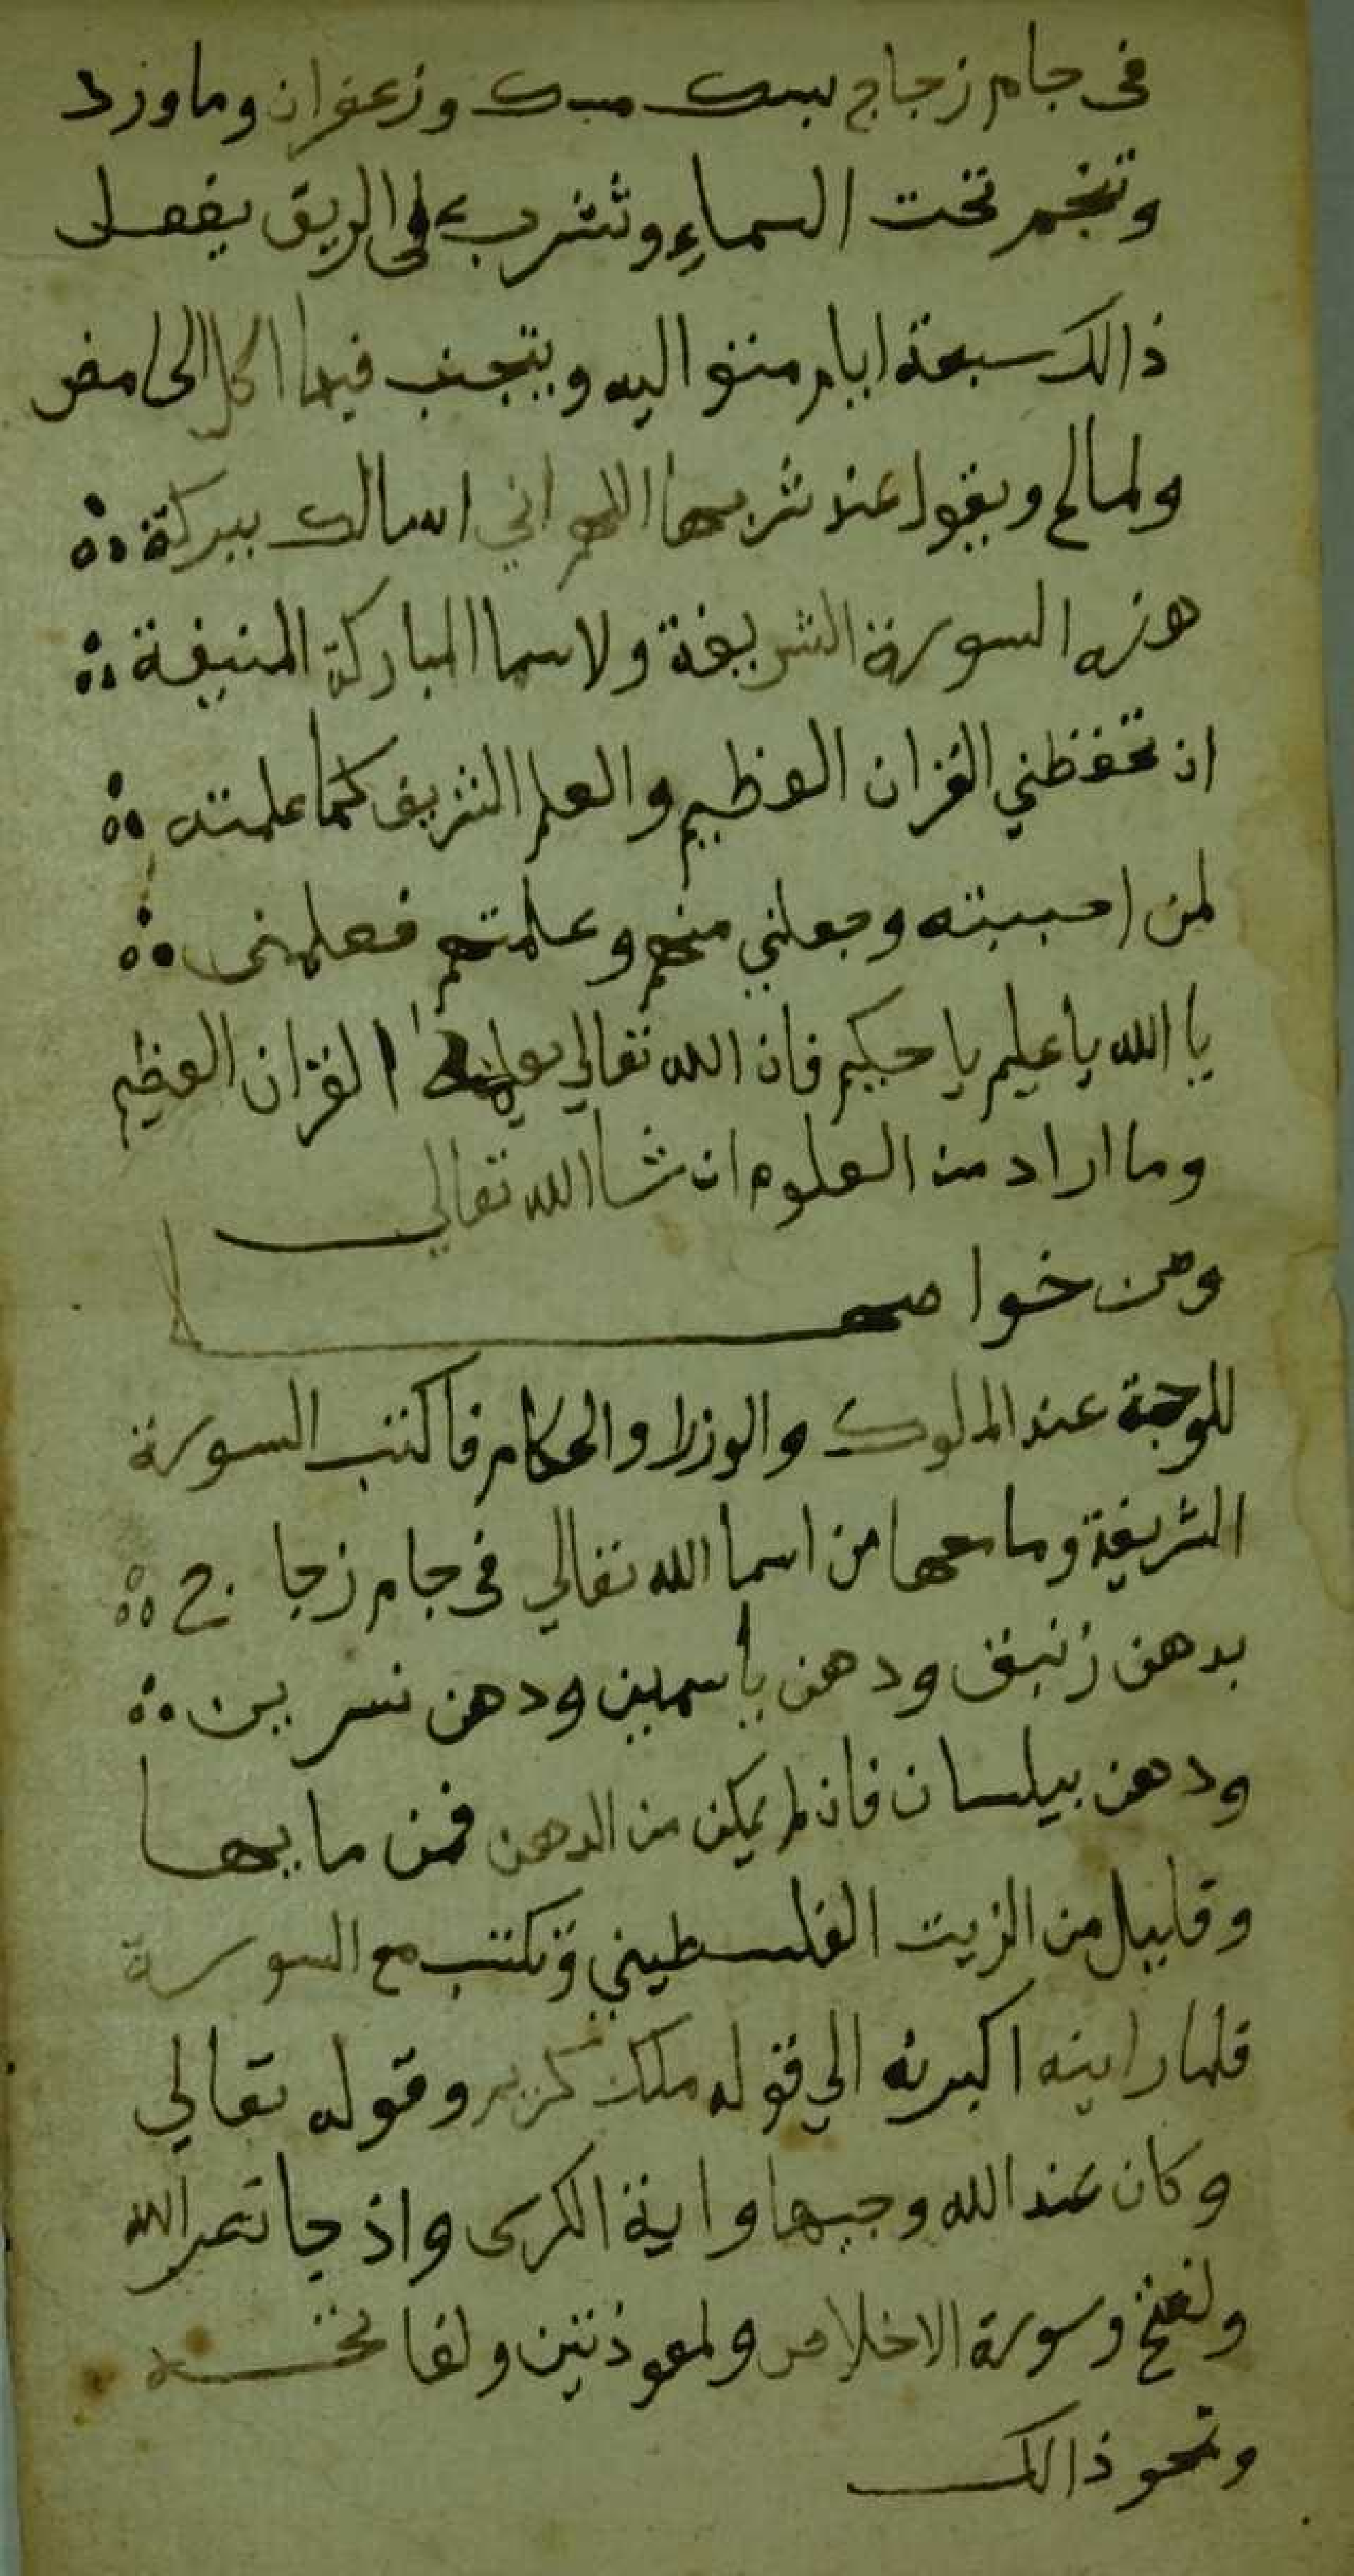 فى جام زجاج بمسك وزعفران وماورد
وتنجم تحت السماءِ وتشرب على الريق يفعل
ذالك سبعة ايام متواليه ويتجنب فيما اكل الحامض
ولمالح ويقول عند شربها اللهم اني اسالك ببركة
هذه السورة الشريفة ولاسما المباركة المنيفة
ان تحفظني القران العظيم والعلم الشريف كما علمته
لمن احببته وجعلني منهم وعلمتهم فعلمنى
يا الله يا عليم يا حكيم فان الله تعالي القران العظيم
وما اراد من العلوم ان شا الله تعالي
ومن خواصها
للوجهة عند الملوك والوزرا والحكام فاكتب السورة
الشريفة وما معها من اسما الله تعالي فى جام زجاج
بدهن زنبق ودهن ياسمين ودهن نسرين
ودهن بيلسان فان لم يمكن من الدهن فمن مايها
وقليل من الزيت الفلسطيني وتكتب مع السورة
فلما راينه اكبرنه الي قوله ملك كريم وقوله تعالي
وكان عند الله وجيها واية الكرسى واذ جا نصر الله
ولفتح وسورة الاخلاص ولمعوذتين ولفاتحه
ونحو ذالك